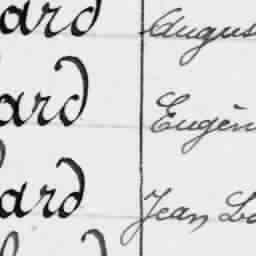 ard Augus
ard Eugèn
ard Jean Ba